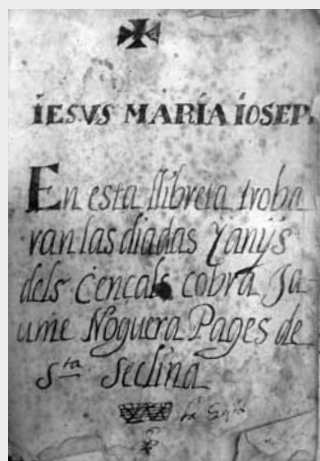 IESVS MARÍA IOSEP.
En esta llibreta troba
ran las diadas Y anys
dels Cençals cobra Ja-
ume Noguera Pages de
Sta Seclina